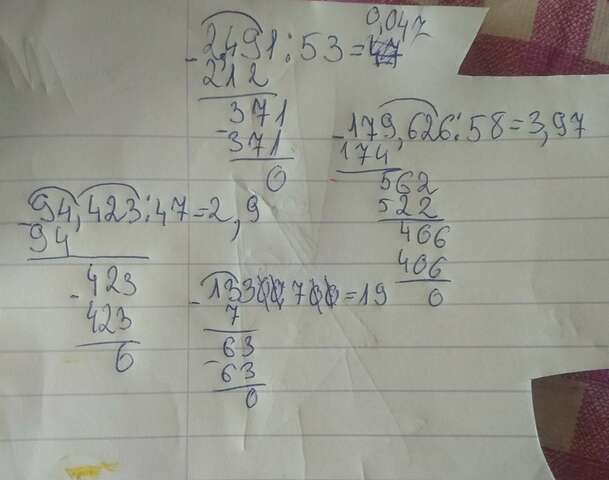 0,047
- 2491:53=
212
371
- 371
0
- 179,626:58=3,97
174
562
522
406
406
0
- 94,423:47=2,9
94
- 423
423
0
- 13300 700=19
7
63
- 63
0